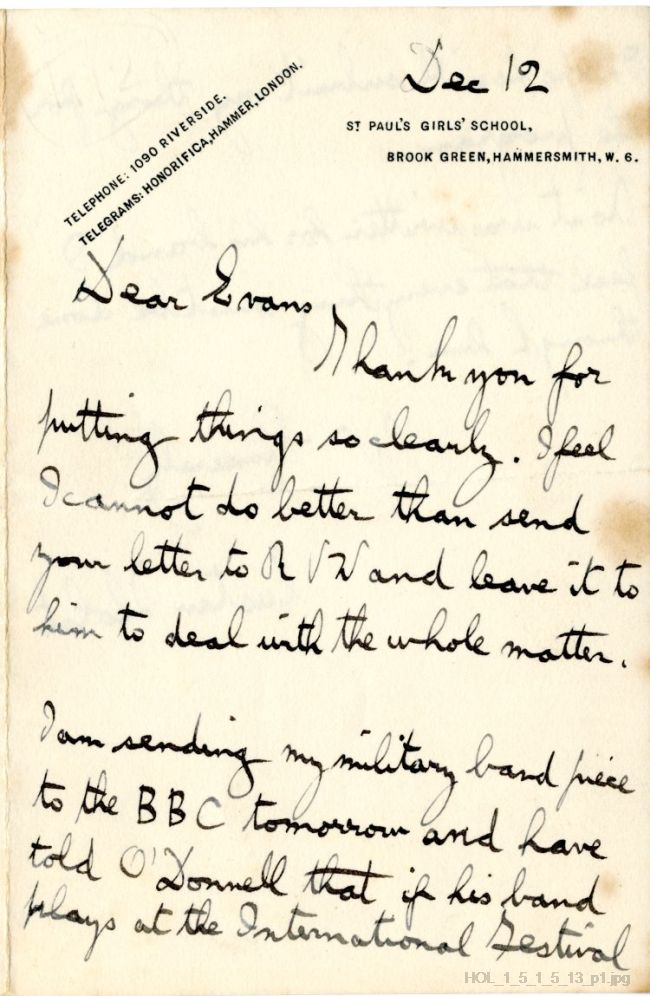 Dec 12
TELEPHONE: 1090 RIVERSIDE.
TELEGRAMS: HONORIFICA, HAMMER, LONDON.
ST PAUL'S GIRLS' SCHOOL,
BROOK GREEN, HAMMERSMITH, W. 6.
Dear Evans
Thank you for
putting things so clearly. I feel
I cannot do better than send
your letter to R V W and leave it to
him to deal with the whole matter.
I am sending my military band piece
to the BBC tomorrow and have
told O'Donnell that if his band
plays at the International Festival
HOL_1_5_1_5_13_p1.jpg